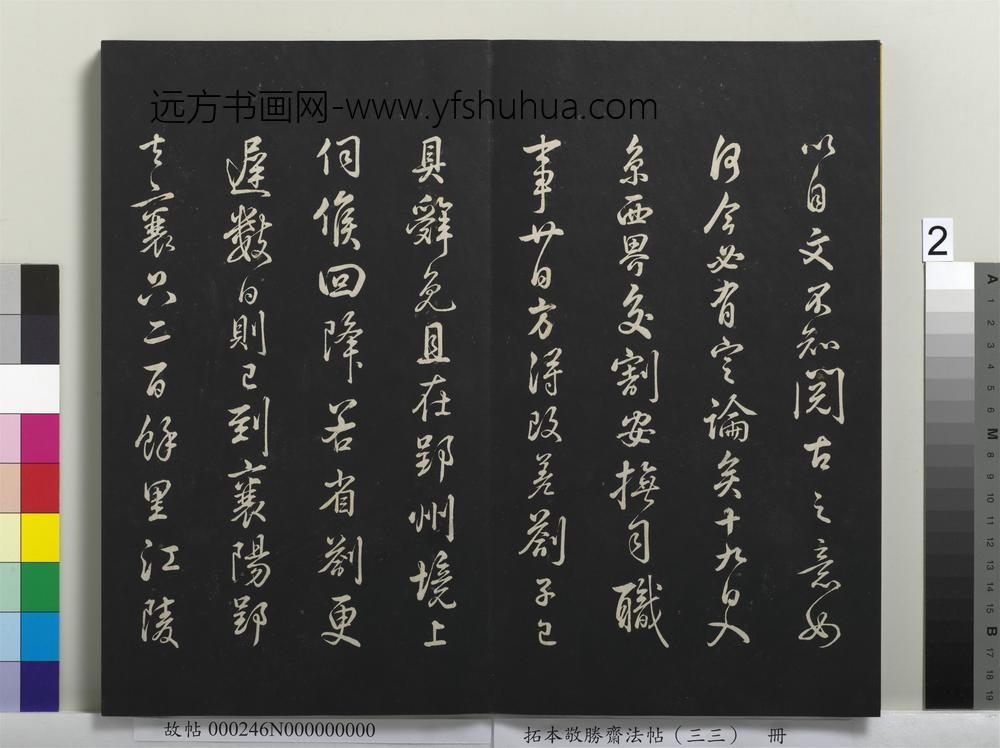 远方书画网-www.yfshuhua.com
以自文不知閱古之意如
何今必有定論矣十九日入
京西界交割安撫司職
事廿日方得改差劄子已
具辭免且在郢州境上
伺候回降若省劄更
遲數日則已到襄陽郢
去襄只二百餘里江陵
2
A 1 2 3 4 5 6 M 8 9 10 11 12 13 14 15 B 17 18 19
故帖 000246N000000000
拓本敬勝齋法帖（三三） 冊